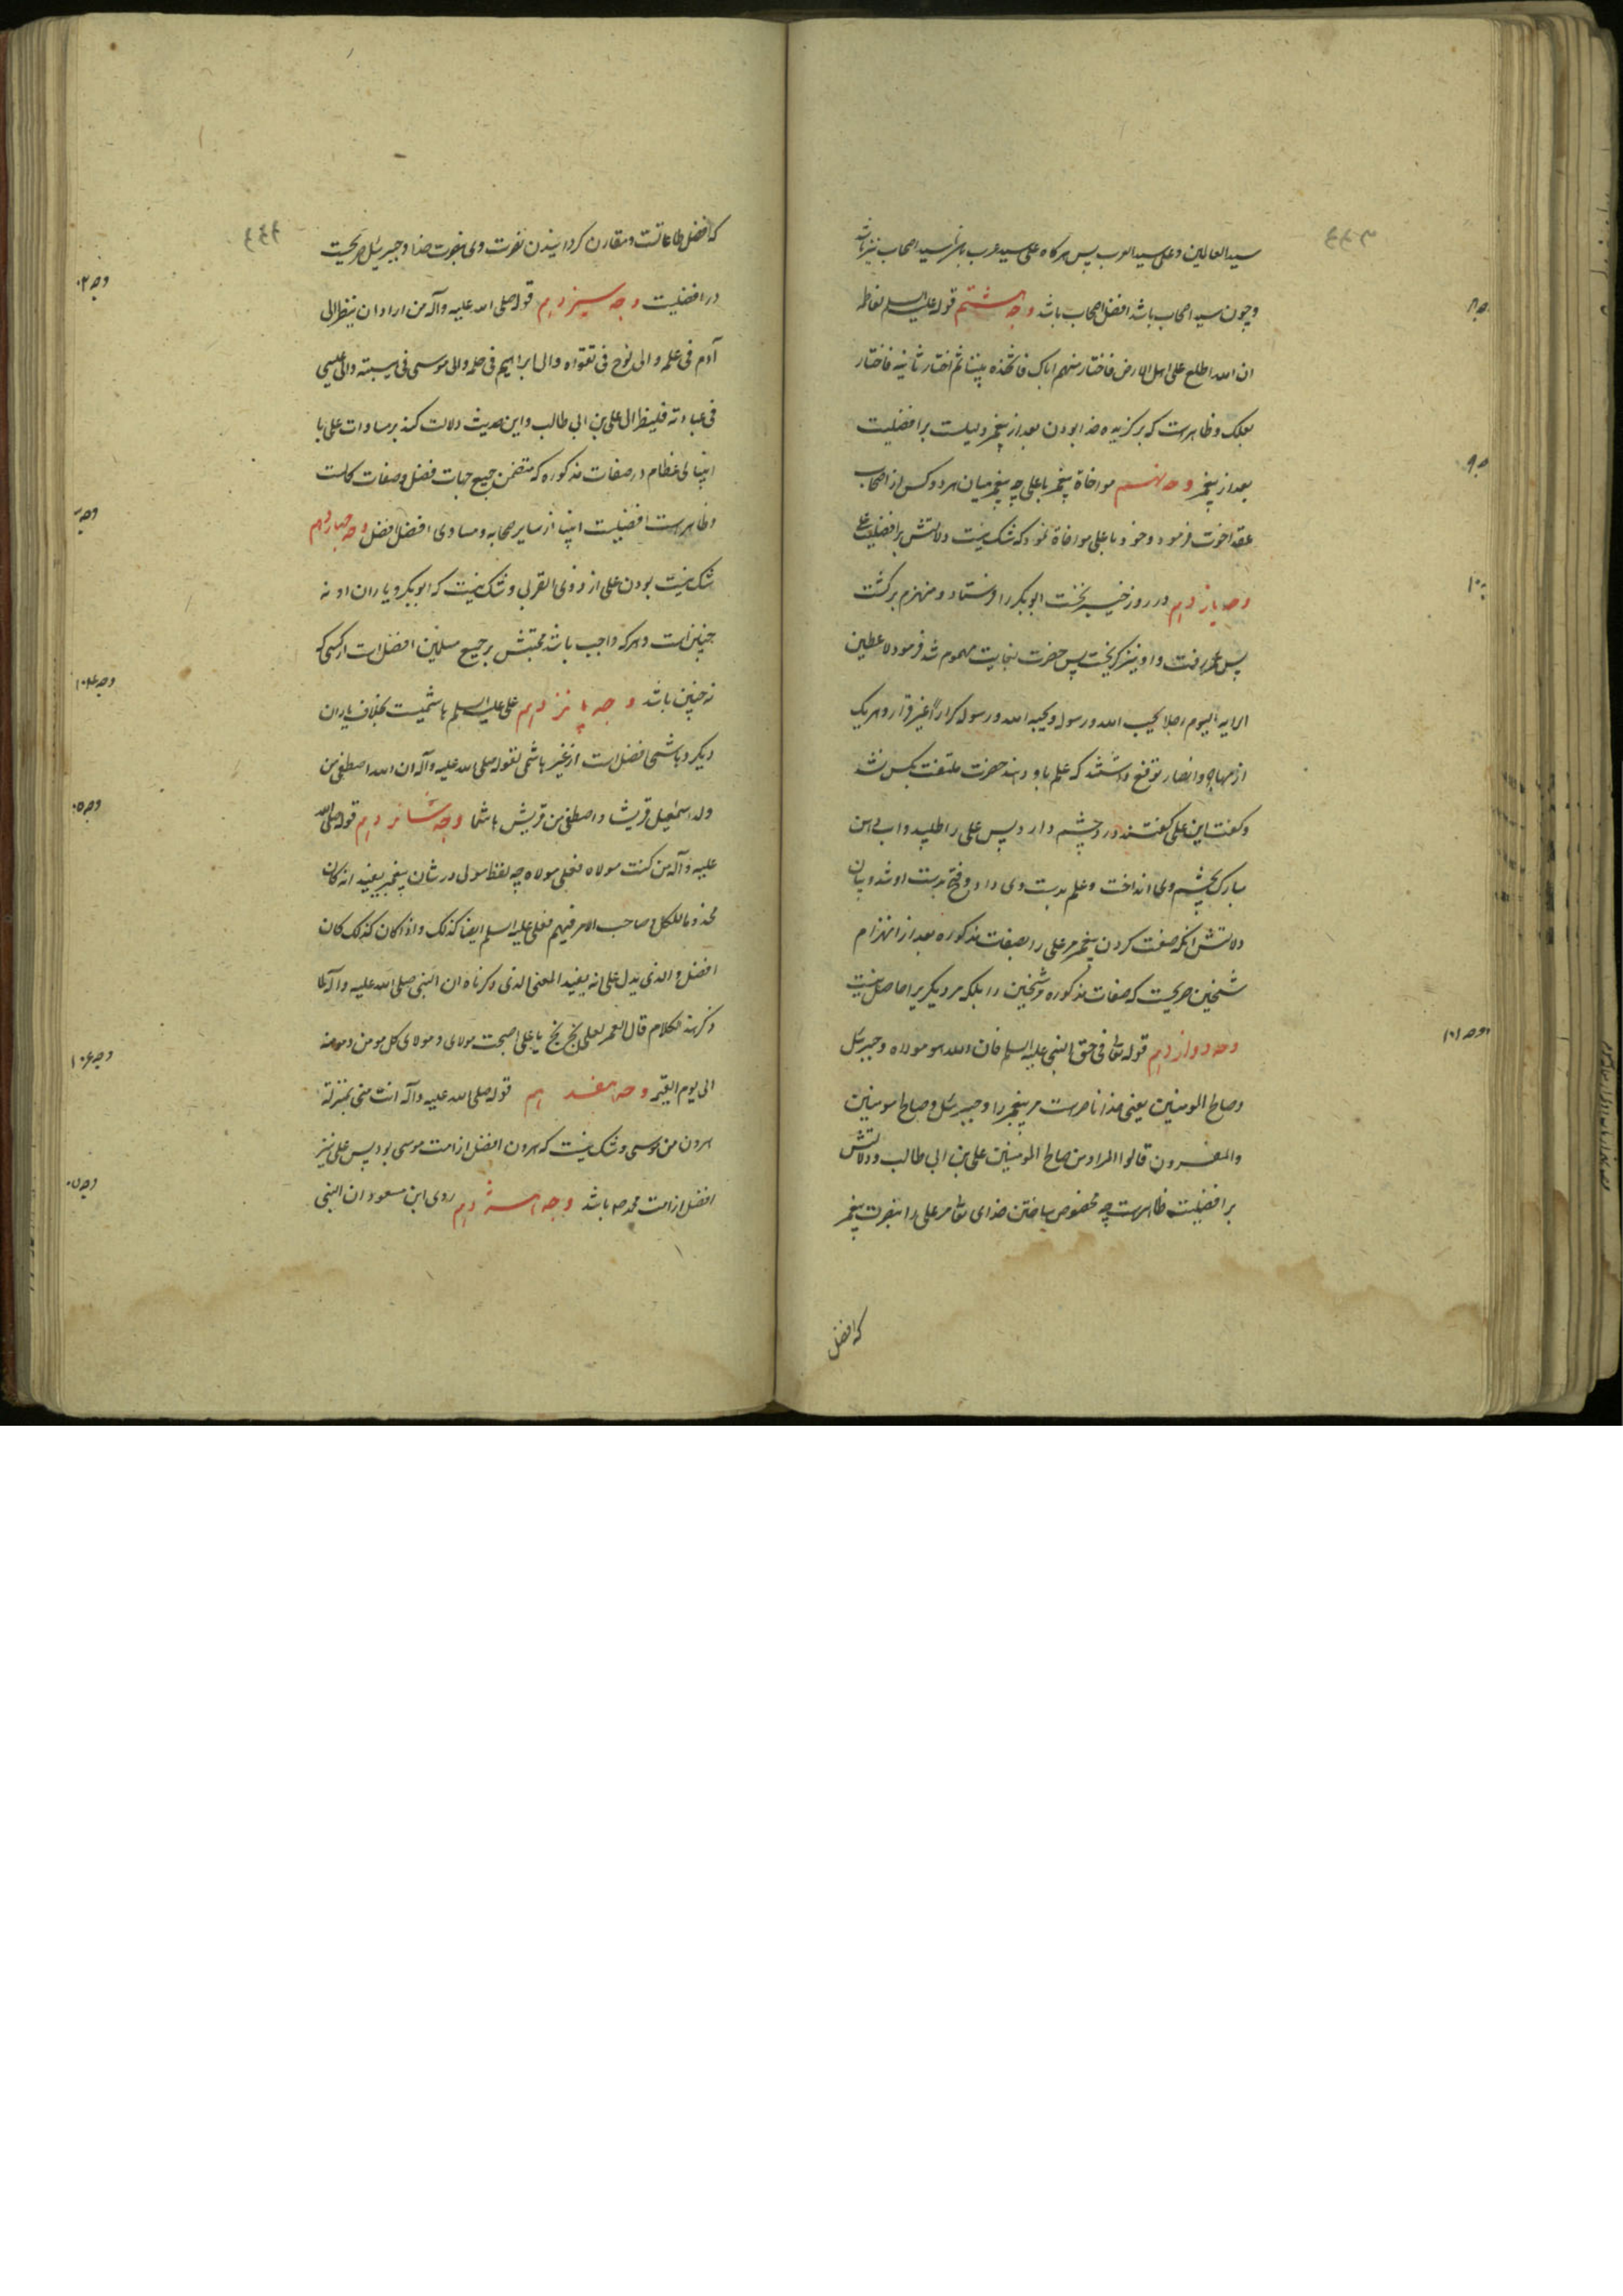 سید العالمین و علی سید العرب پس هرگاه علی سید عرب باشد سید اصحاب نیز باشد
و چون سید اصحاب باشد افضل اصحاب باشد وجه هشتم قوله علیه السلم لفاطمه
ان الله اطلع علی اهل الارض فاختار منهم اباک فاتخذه نبیا ثم اختار ثانیه فاختار
بعلک و ظاهرست که برگزیده خدا بودن بعد از پیغمبر دلیلست بر افضلیت
بعد از پیغمبر وجه نهم مواخاة پیغمبر با علی چه پیغمبر میان هر دو کس از اصحاب
عقد اخوت فرمود و خود با علی مواخاة نمود که شک نیست دلالتش بر افضلیت علی
وجه یازدهم در روز خیبر نخست ابوبکر را فرستاد و منهزم برگشت
پس عمر رفت و او نیز گریخت پس حضرت بغایت مهموم شد فرمود لاعطین
الرایه الیوم رجلا یحب الله و رسوله و یحبه الله و رسوله کرارا غیر فرار و هر یک
از مهاجر و انصار توقع داشتند که علم باو دهند حضرت ملتفت بکس نشد
و گفت این علی گفتند درد چشم دارد پس علی را طلبید و آب دهن
مبارک بچشم وی انداخت و علم بدست وی داد و فتح بدست او شد و بیان
دلالتش آنکه صفت کردن پیغمبر مر علی را بصفات مذکوره بعد از انهزام
شیخین صریحست که صفات مذکوره مر شیخین را بلکه مر دیگریرا حاصل نیست
وجه دوازدهم قوله تعالی فی حق النبی علیه السلم فان الله هو مولاه و جبرئیل
و صالح المومنین یعنی خدا ناصرست مر پیغمبر را و جبرئیل و صالح المومنین
والمفسرون قالوا المراد من صالح المومنین علی بن ابی طالب و دلالتش
بر افضلیت ظاهرست چه مخصوص ساختن خدای تعالی مر علی را بنصرت پیغمبر
که افضل
که افضل طاعاتست و مقارن گردانیدن نصرت وی بنصرت خدا و جبرئیل صریحست
در افضلیت وجه سیزدهم قوله صلی الله علیه و آله من اراد ان ینظر الی
آدم فی علمه و الی نوح فی تقواه و الی ابراهیم فی حلمه و الی موسی فی هیبته و الی عیسی
فی عبادته فلینظر الی علی بن ابی طالب و این حدیث دلالت کند بر مساوات علی با
انبیای عظام در صفات مذکوره که متضمن جمیع جهات فضل و صفات کمالست
و ظاهرست افضلیت انبیا از سایر صحابه و مساوی افضل افضل وجه چهاردهم
شک نیست بودن علی از ذوی القربی و شک نیست که ابوبکر و یاران او نه
چنین‌اند و هر که واجب باشد محبتش بر جمیع مسلمین افضل است از کسی که
نه چنین باشد وجه پانزدهم علی علیه السلم هاشمیست بخلاف یاران
دیگر و هاشمی افضل است از غیر هاشمی لقوله صلی الله علیه و آله ان الله اصطفی من
ولد اسمعیل قریشا و اصطفی من قریش هاشما وجه شانزدهم قوله صلی الله
علیه و آله من کنت مولاه فعلی مولاه چه لفظ مولی در شان پیغمبر یفید انه کان
مخدوما للکل و صاحب الامر فیهم فعلی علیه السلم ایضا کذلک و اذا کان کذلک کان
افضل و الذی یدل علی انه یفید المعنی الذی ذکرناه ان النبی صلی الله علیه و آله لما
ذکر هذا الکلام قال العمر لعلی بخ بخ یا علی اصبحت مولای و مولای کل مومن و مومنه
الی یوم القیمه وجه هفدهم قوله صلی الله علیه و آله انت منی بمنزلة
هرون من موسی و شک نیست که هرون افضل از امت موسی بود پس علی نیز
افضل از امت محمد ص باشد وجه هشتدهم روی ابن مسعود ان النبی